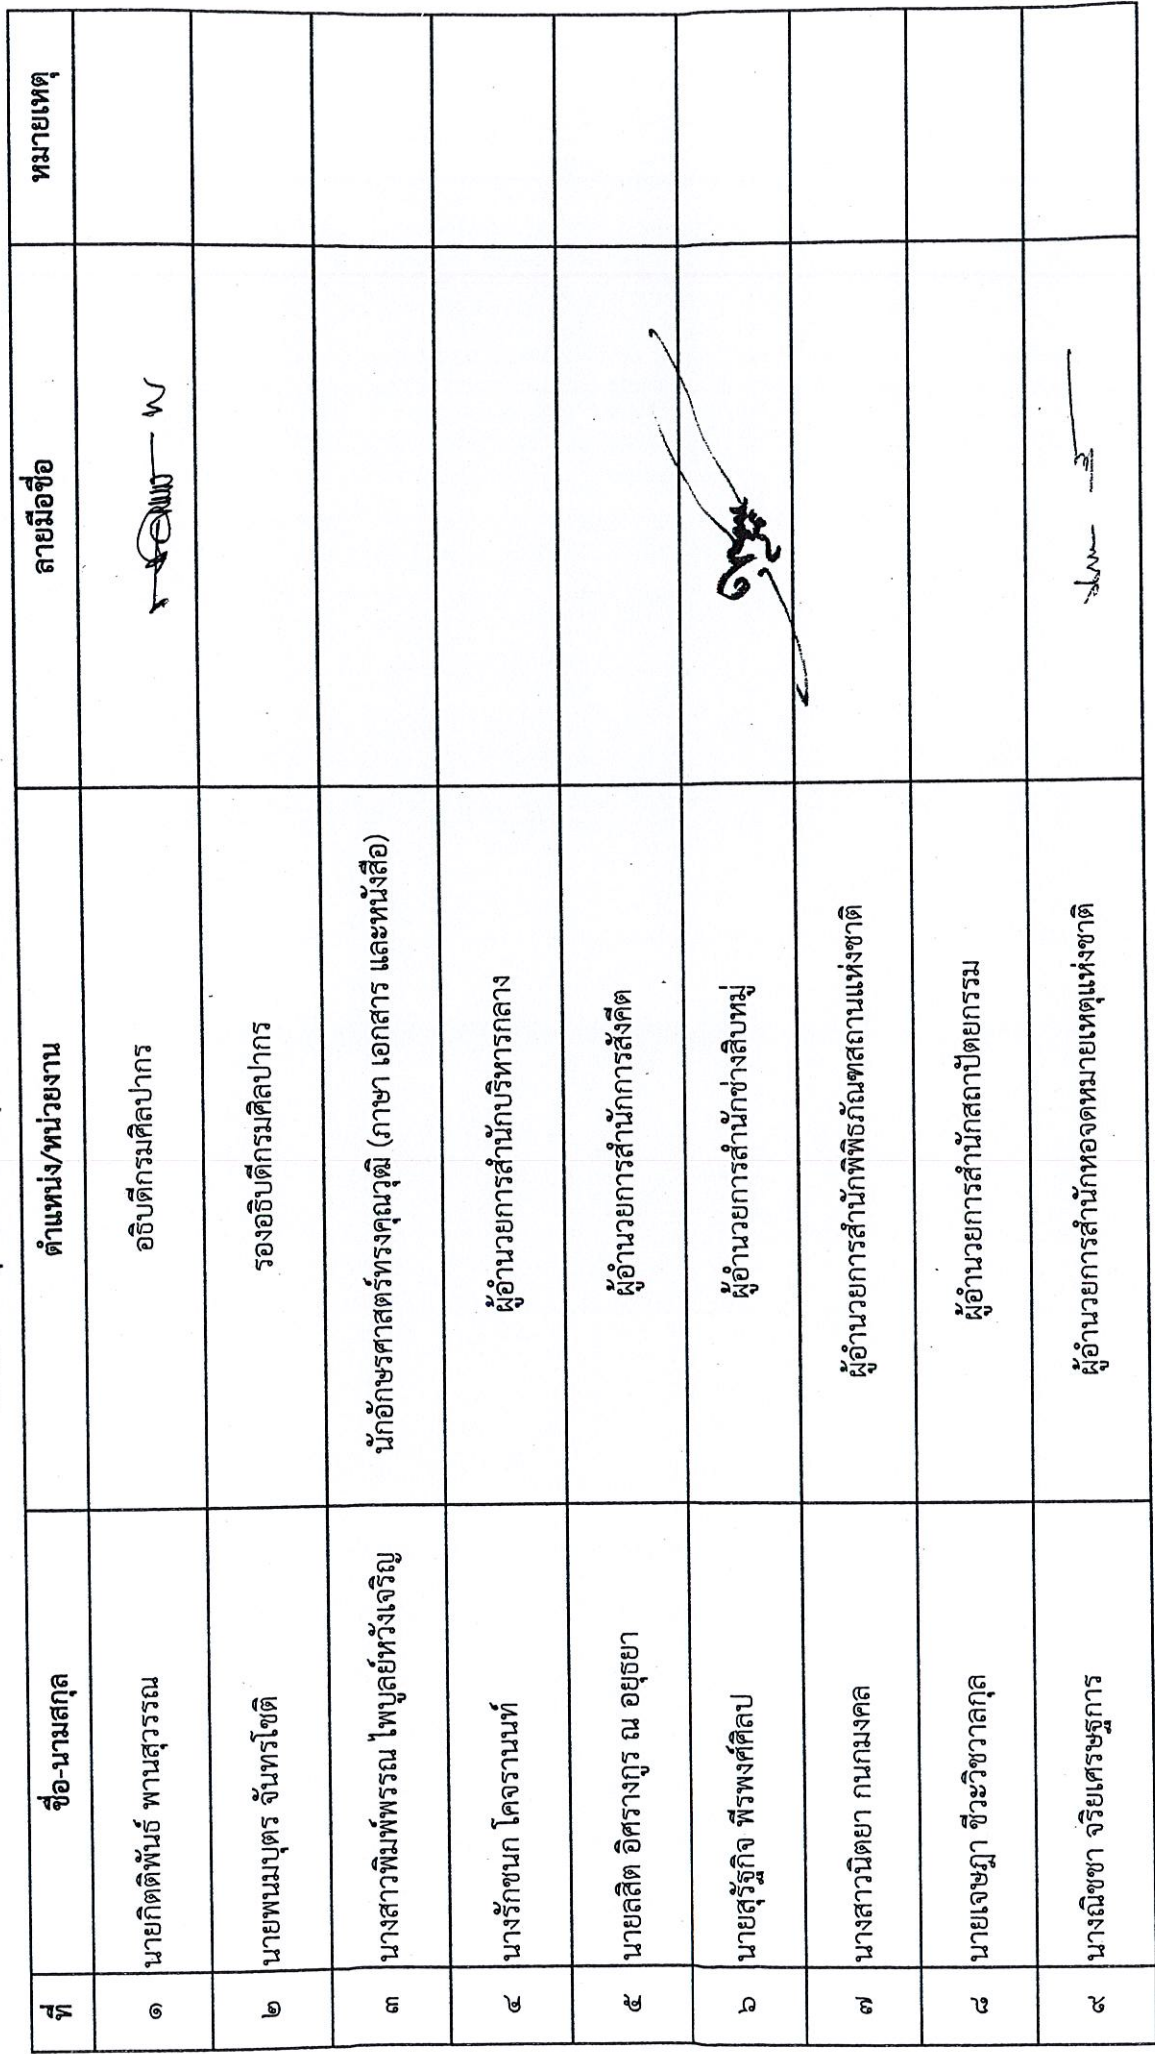 ที่ ชื่อ-นามสกุล ตำแหน่ง/หน่วยงาน ลายมือชื่อ หมายเหตุ
๑ นายกิตติพันธ์ พานสุวรรณ อธิบดีกรมศิลปากร
๒ นายพนมบุตร จันทรโชติ รองอธิบดีกรมศิลปากร
๓ นางสาวพิมพ์พรรณ ไพบูลย์หวังเจริญ นักอักษรศาสตร์ทรงคุณวุฒิ (ภาษา เอกสาร และหนังสือ)
๔ นางรักชนก โคจรานนท์ ผู้อำนวยการสำนักบริหารกลาง
๕ นายลสิต อิศรางกูร ณ อยุธยา ผู้อำนวยการสำนักการสังคีต
๖ นายสุรัฐกิจ พีรพงศ์ศิลป ผู้อำนวยการสำนักช่างสิบหมู่
๗ นางสาวนิตยา กนกมงคล ผู้อำนวยการสำนักพิพิธภัณฑสถานแห่งชาติ
๘ นายเจษฎา ชีวะวิชวาลกุล ผู้อำนวยการสำนักสถาปัตยกรรม
๙ นางณิชชา จริยเศรษฐการ ผู้อำนวยการสำนักหอจดหมายเหตุแห่งชาติ